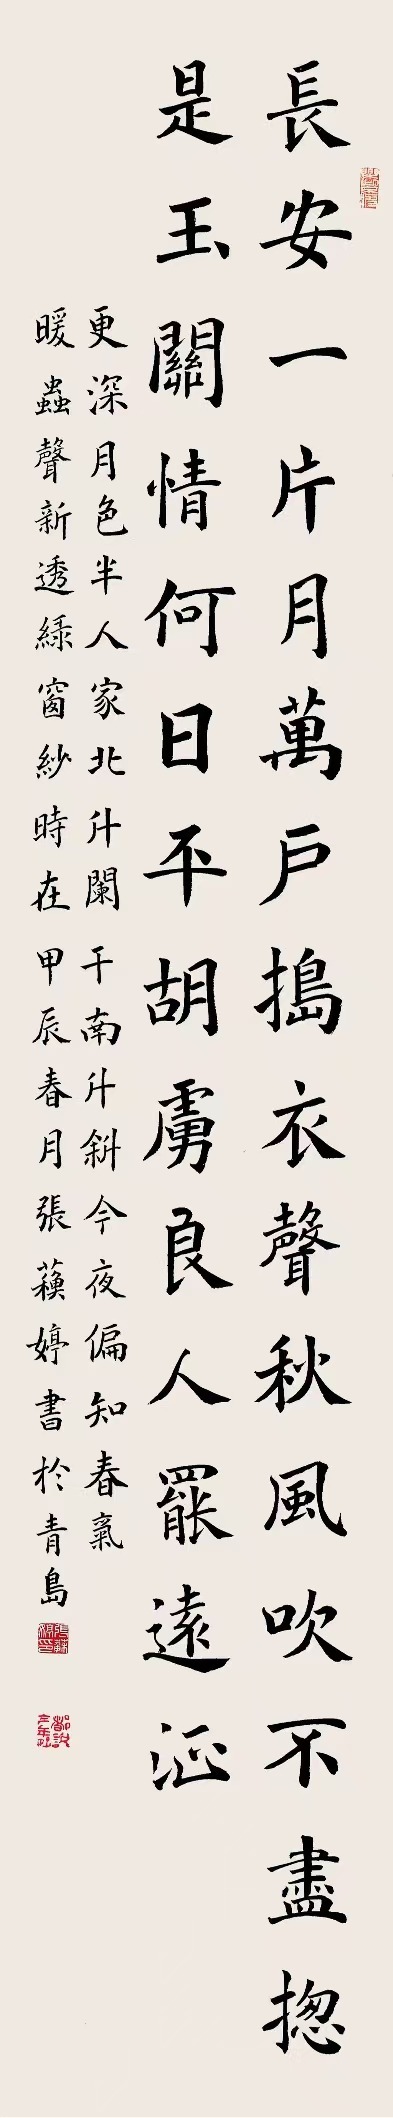 長安一片月萬戶搗衣聲秋風吹不盡揔
是玉關情何日平胡虜良人罷遠征
更深月色半人家北斗闌干南斗斜今夜偏知春氣
暖蟲聲新透綠窗紗時在甲辰春月張蘋婷書於青島